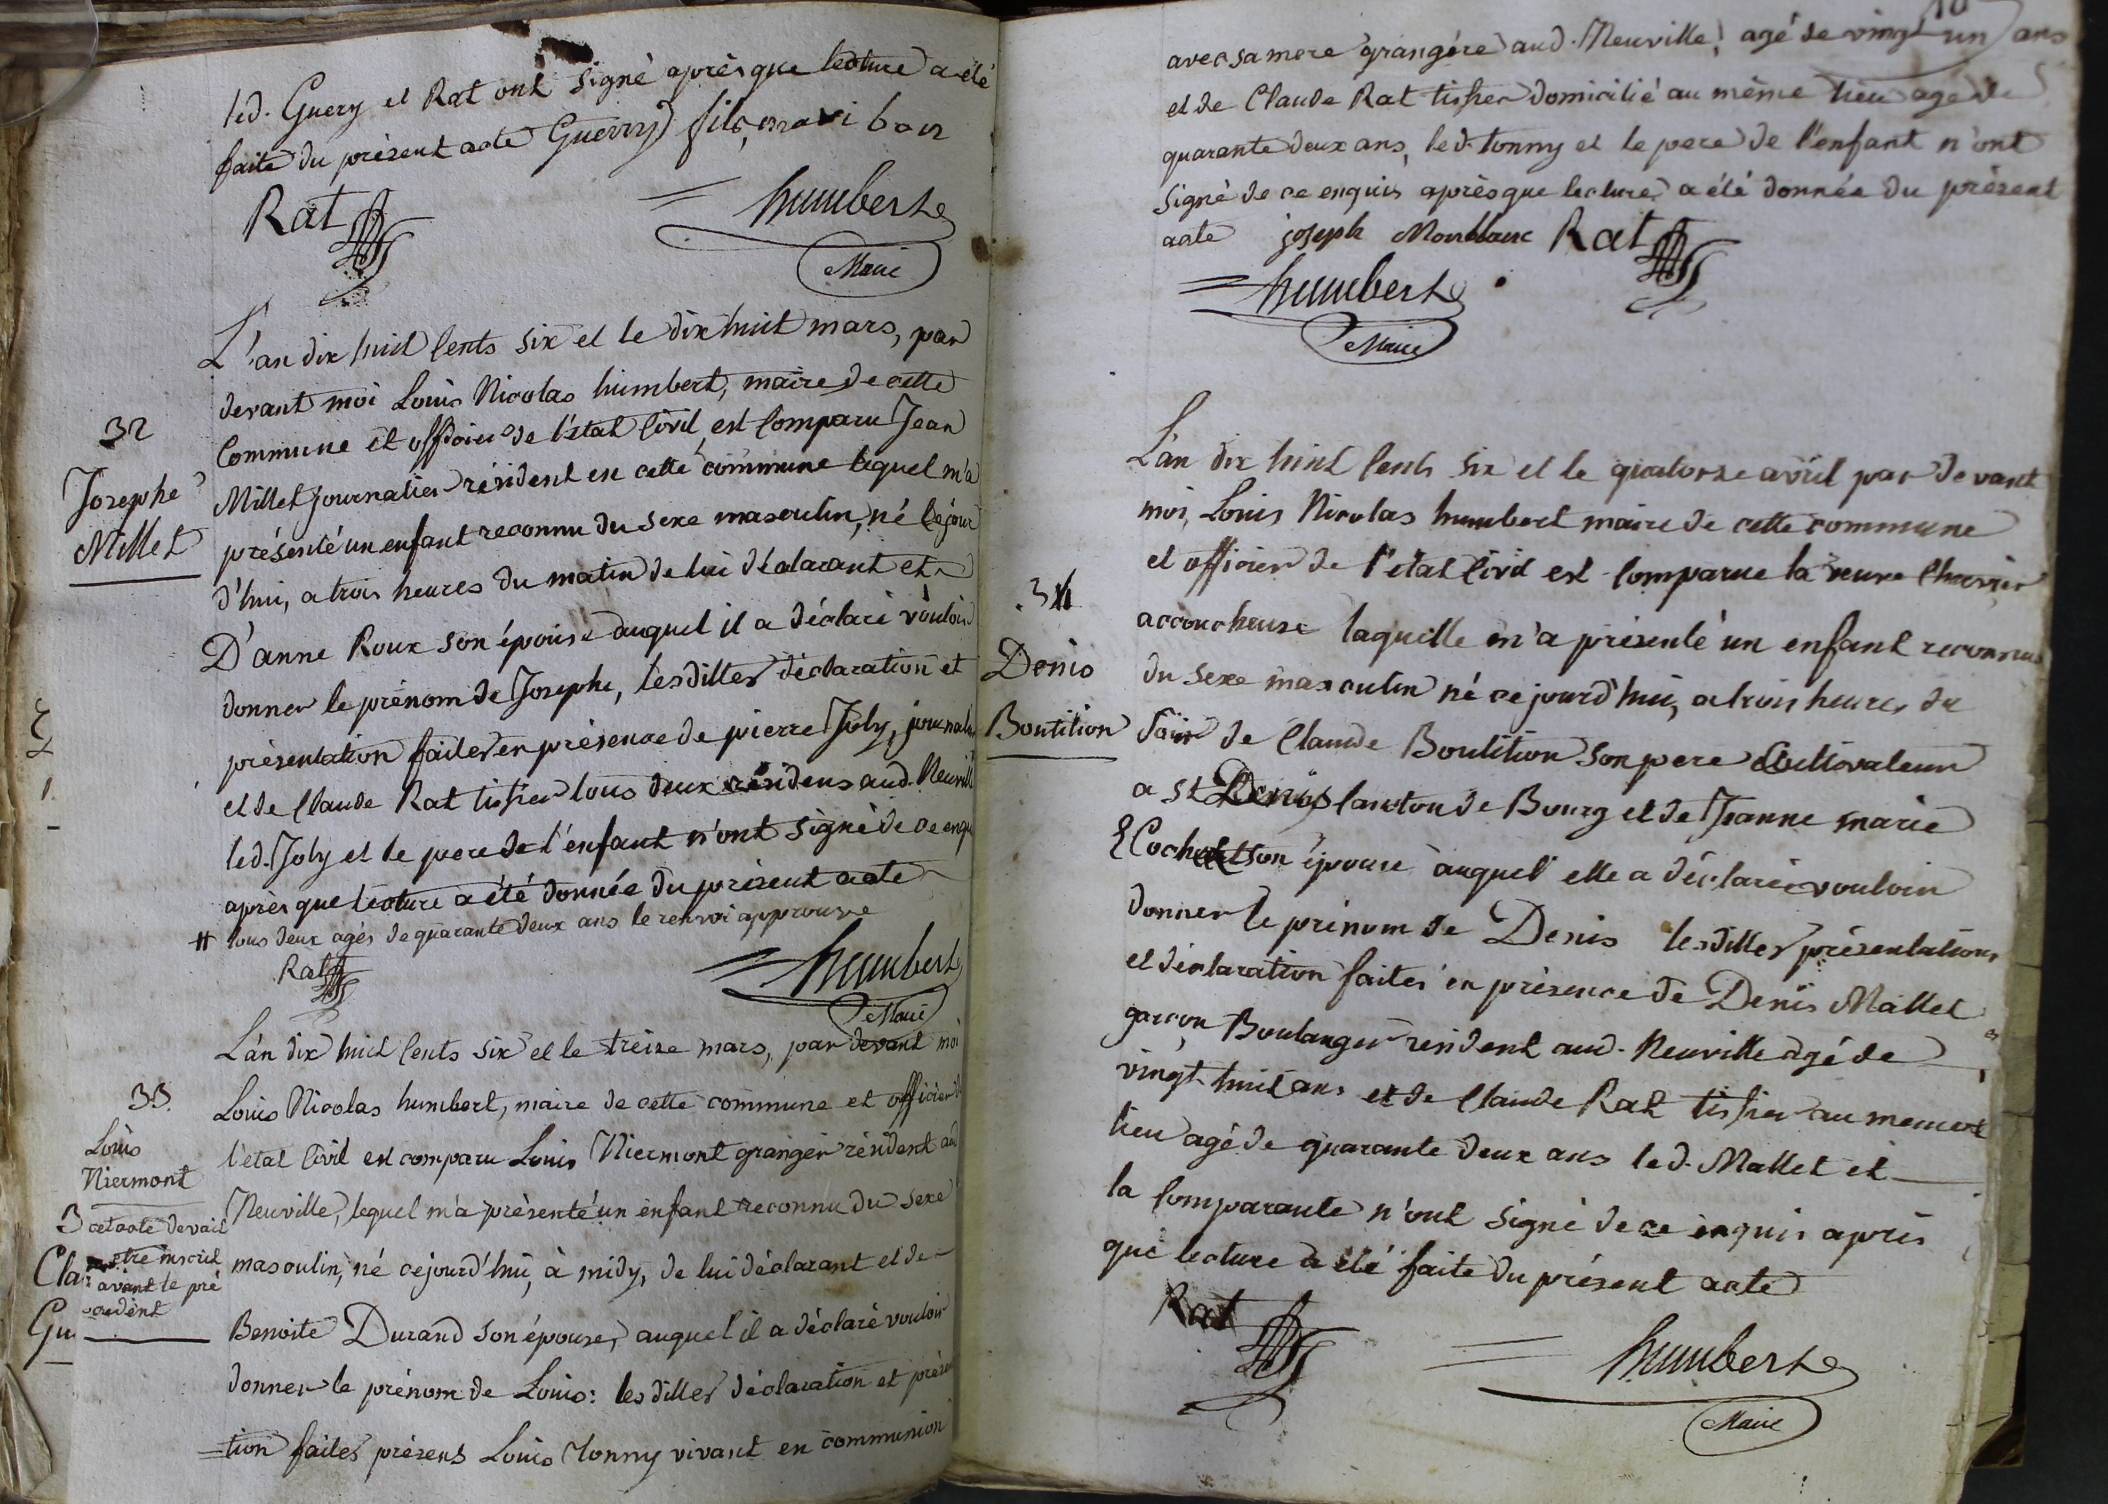 led. Guery et Rat ont signé après que lecture a été
faite du présent acte Guerry fils, mari bon
Rat
humbert
Maire
L'an dix huit Cents six et le dix huit mars, par
devant moi Louis Nicolas humbert, maire de cette
Commune et officier de l'état Civil, est Comparu Jean
Millet journalier résident en cette commune lequel m'a
présenté un enfant reconnu du sexe masculin, né cejour
d'hui, a trois heures du matin de lui déclarant et
D'anne Roux son épouse auquel il a déclaré vouloir
donner le prénom de Josephe, lesdittes déclaration et
présentation faites en présence de pierre Joly, journalier
et de Claude Rat tissier tous deux résidens aud. Neuville
led. Joly et le pere de l'enfant n'ont signé de ce enquis
après que lecture a été donnée du présent acte
# tous deux agés de quarante deux ans le renvoi approuvé
Rat
humbert
Maire
32
Josephe
Millet
L'an dix huit Cents six et le treize mars, par devant moi
Louis Nicolas humbert, maire de cette commune et officier de
l'état Civil est comparu Louis Niermont granger résident aud
Neuville, lequel m'a présenté un enfant reconnu du sexe
masculin, né cejourd'hui, à midy, de lui déclarant et de
Benoite Durand son épouse, auquel il a déclaré vouloir
donner le prénom de Louis: lesdittes déclaration et présen
=tion faites présens Louis Tonny vivant en communion
33
Louis
Niermont
cet acte devait
etre inscrit
avant le pré
cedent
3
Cla
Gu
10
avec sa mere grangére aud. Neuville, agé de vingt un ans
et de Claude Rat tissier domicilié au même lieu agé de
quarante deux ans, led. Tonny et le pere de l'enfant n'ont
signé de ce enquis après que lecture a été donnée du présent
acte joseph Monblanc Rat
humbert
Maire
L'an dix huit Cents six et le quatorze avril par devant
moi, Louis Nicolas humbert maire de cette commune
et officier de l'état Civil est Comparue la veuve
accoucheuse laquelle m'a présenté un enfant reconnu
du sexe masculin né cejourd'hui, a trois heures du
soir de Claude Boutition son pere Cultivateur
a st Denis canton de Bourg et de Jeanne marie
son épouse auquel elle a déclarée vouloir
donner le prénom de Denis lesdittes présentation
et déclaration faites en présence de Denis Mallet
garçon Boulanger résident aud. Neuville agé de
vingt-huit ans et de Claude Rat tissier au meme
lieu agé de quarante deux ans led. Mallet et
la Comparante n'ont signé de ce enquis après
que lecture a été faite du présent acte
Rat
humbert
Maire
34
Denis
Boutition